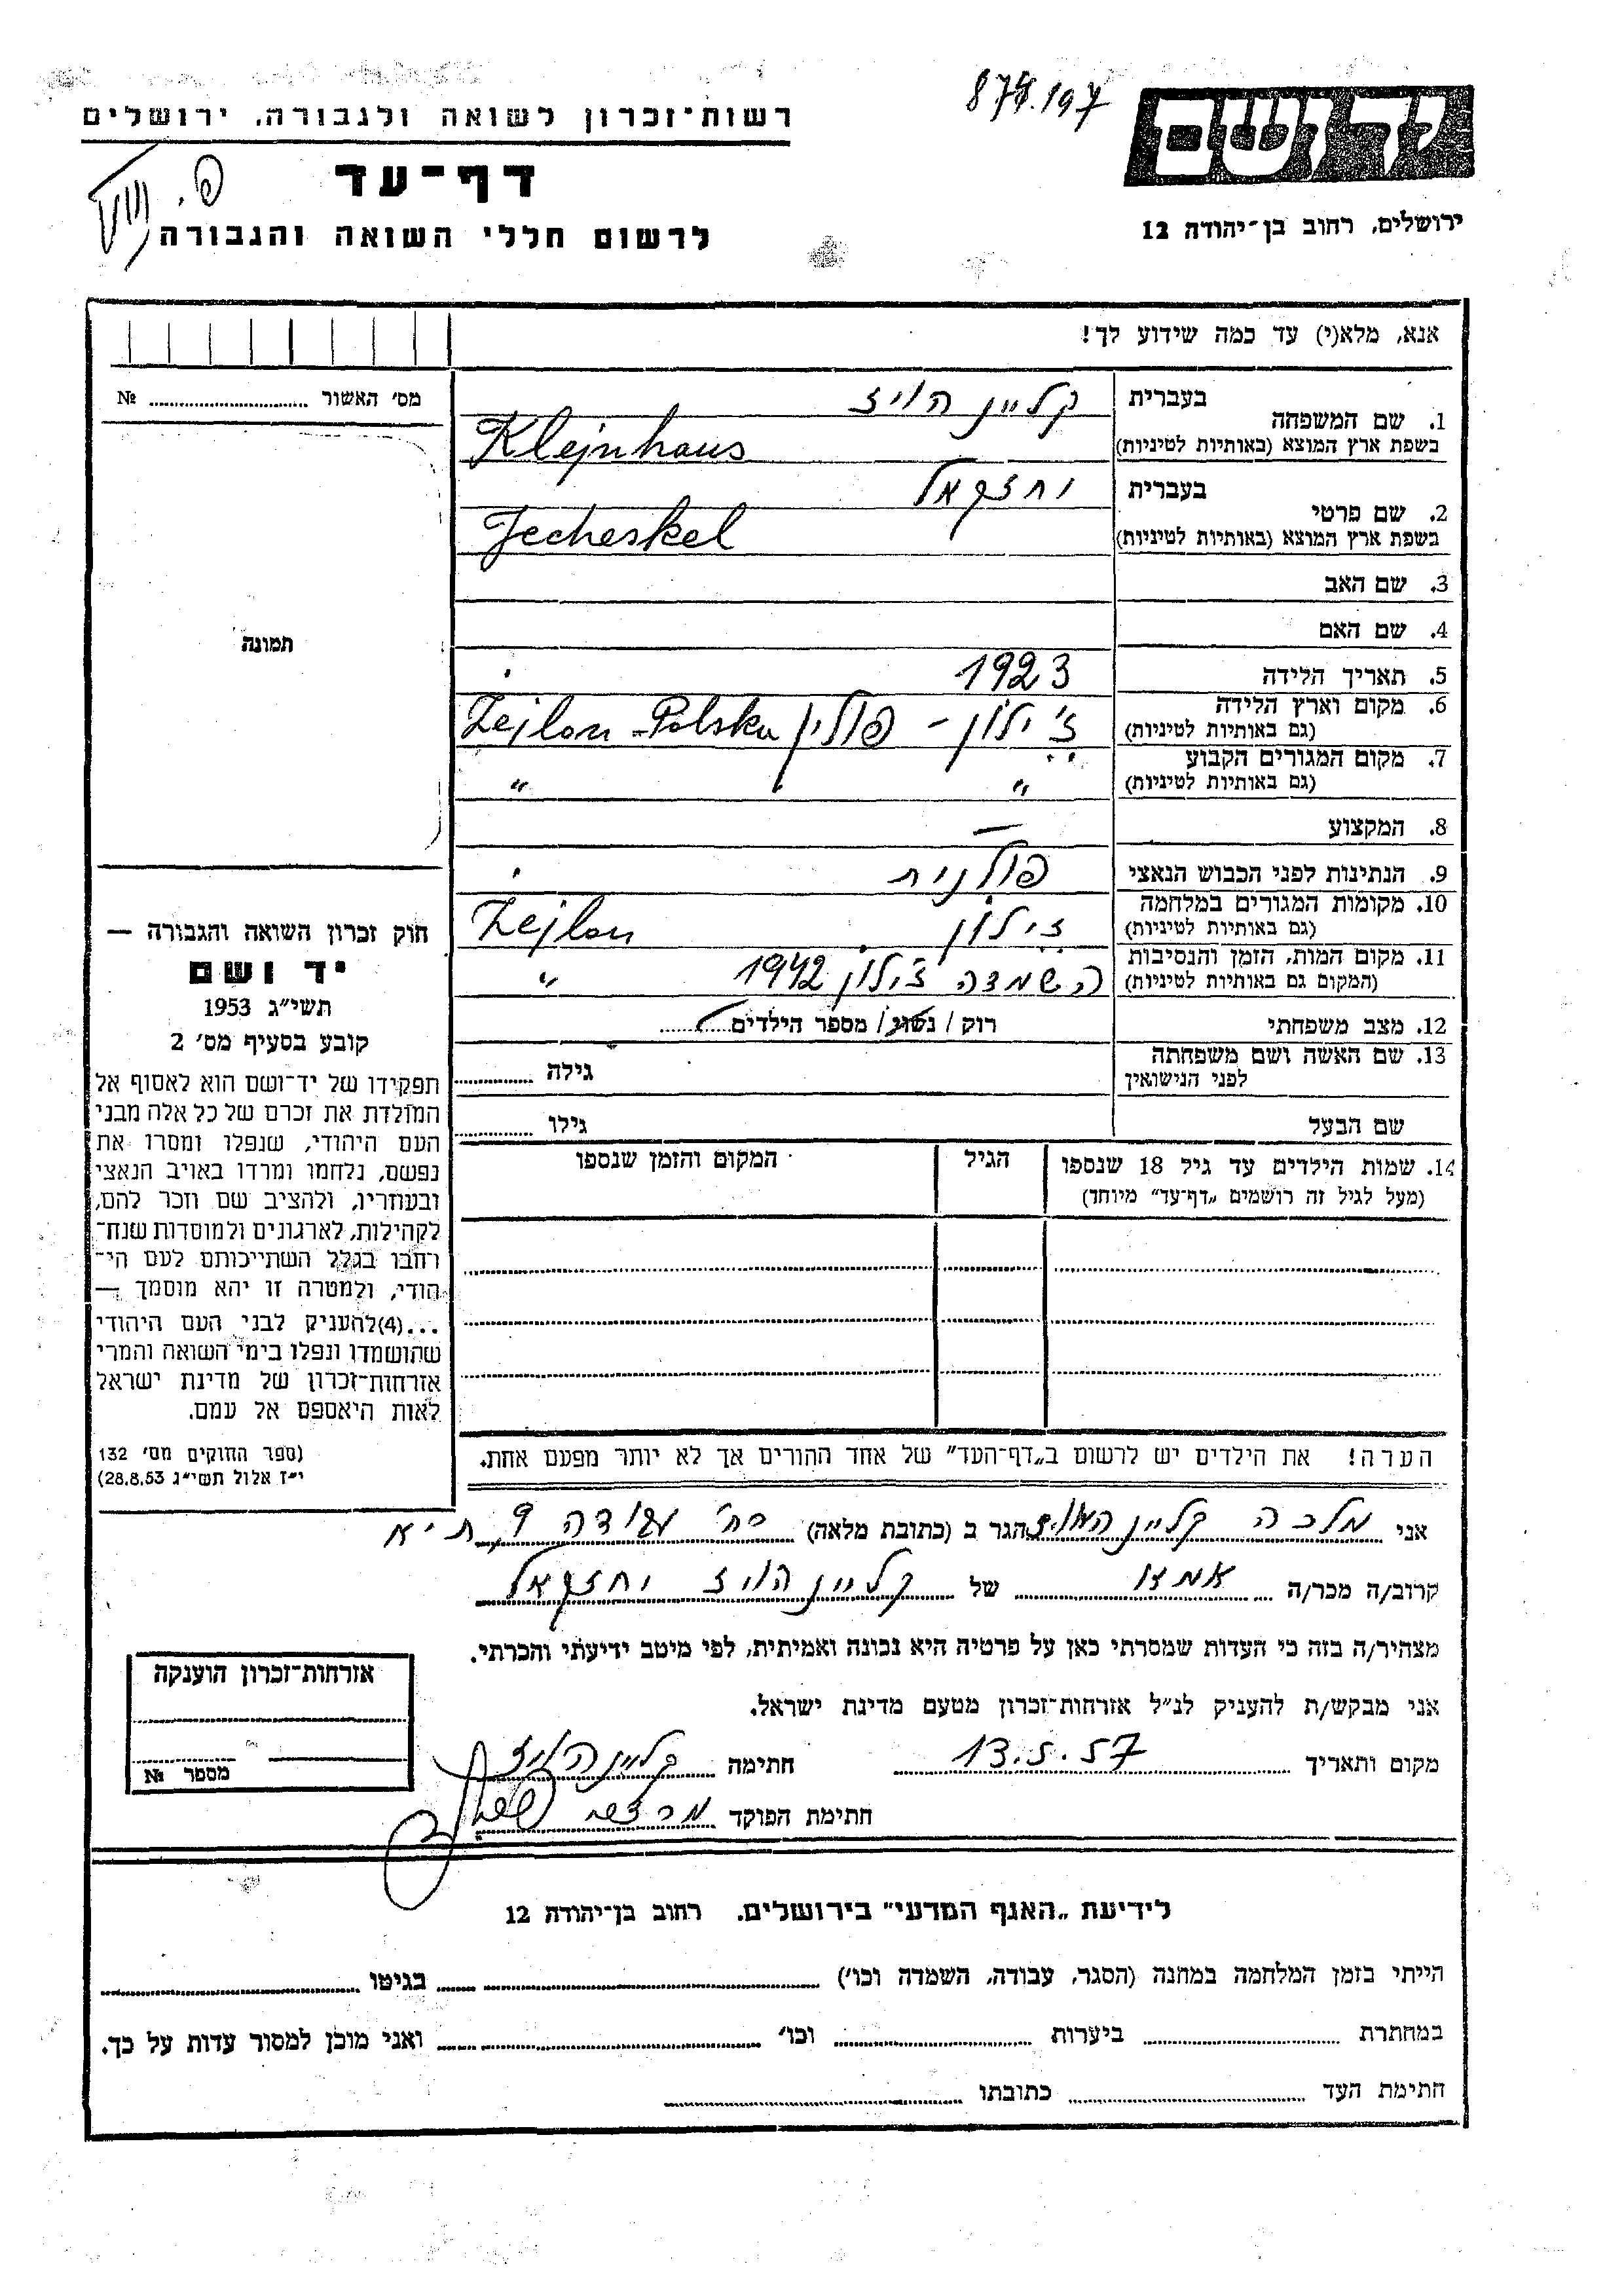 874.197
יד ושם
ירושלים, רחוב בן־יהודה 12
רשות־זכרון לשואה ולגבורה, ירושלים
דף־עד
לרשום חללי השואה והגבורה
אנא, מלא(י) עד כמה שידוע לך!
מס' האשור ........ №
תמונה
1. שם המשפחה
בעברית קליין הויז
בשפת ארץ המוצא (באותיות לטיניות) Klejnhaus
2. שם פרטי
בעברית יחזקאל
בשפת ארץ המוצא (באותיות לטיניות) Jecheskel
3. שם האב
4. שם האם
5. תאריך הלידה 1923
6. מקום וארץ הלידה
(גם באותיות לטיניות) ז'ילון – פולין Zejlon - Polska
7. מקום המגורים הקבוע
(גם באותיות לטיניות) " "
8. המקצוע —
9. הנתינות לפני הכבוש הנאצי פולנית
10. מקומות המגורים במלחמה
(גם באותיות לטיניות) זילון Zejlon
11. מקום המות, הזמן והנסיבות
(המקום גם באותיות לטיניות) השמדה ז'ילון 1942 "
12. מצב משפחתי רוק / נשוי / מספר הילדים
13. שם האשה ושם משפחתה
לפני הנישואין גילה
שם הבעל גילו
14. שמות הילדים עד גיל 18 שנספו
(מעל לגיל זה רושמים „דף־עד” מיוחד)
הגיל
המקום והזמן שנספו
הערה! את הילדים יש לרשום ב„דף־העד” של אחד ההורים אך לא יותר מפעם אחת.
חוק זכרון השואה והגבורה —
יד ושם
תשי"ג 1953
קובע בסעיף מס' 2
תפקידו של יד־ושם הוא לאסוף אל
המולדת את זכרם של כל אלה מבני
העם היהודי, שנפלו ומסרו את
נפשם, נלחמו ומרדו באויב הנאצי
ובעוזריו, ולהציב שם וזכר להם,
לקהילות, לארגונים ולמוסדות שנח־
רחבו בגלל השתייכותם לעם הי־
הודי, ולמטרה זו יהא מוסמך —
...(4)להעניק לבני העם היהודי
שהושמדו ונפלו בימי השואה והמרי
אזרחות־זכרון של מדינת ישראל
לאות היאספם אל עמם.
(ספר החוקים מס' 132
י"ז אלול תשי"ג 28.8.53)
אני מלכה קליין הויז הגר ב (כתובת מלאה) רח' 9 ת"א
קרוב/ה מכר/ה של קליין הויז יחזקאל
מצהיר/ה בזה כי העדות שמסרתי כאן על פרטיה היא נכונה ואמיתית, לפי מיטב ידיעתי והכרתי.
אני מבקש/ת להעניק לנ"ל אזרחות־זכרון מטעם מדינת ישראל.
מקום ותאריך 13.5.57 חתימה קליין הויז
חתימת הפוקד
אזרחות־זכרון הוענקה
מספר №
לידיעת „האגף המדעי” בירושלים. רחוב בן־יהודה 12
הייתי בזמן המלחמה במחנה (הסגר, עבודה, השמדה וכו') בגיטו
במחתרת ביערות וכו' ואני מוכן למסור עדות על כך.
חתימת העד כתובתו